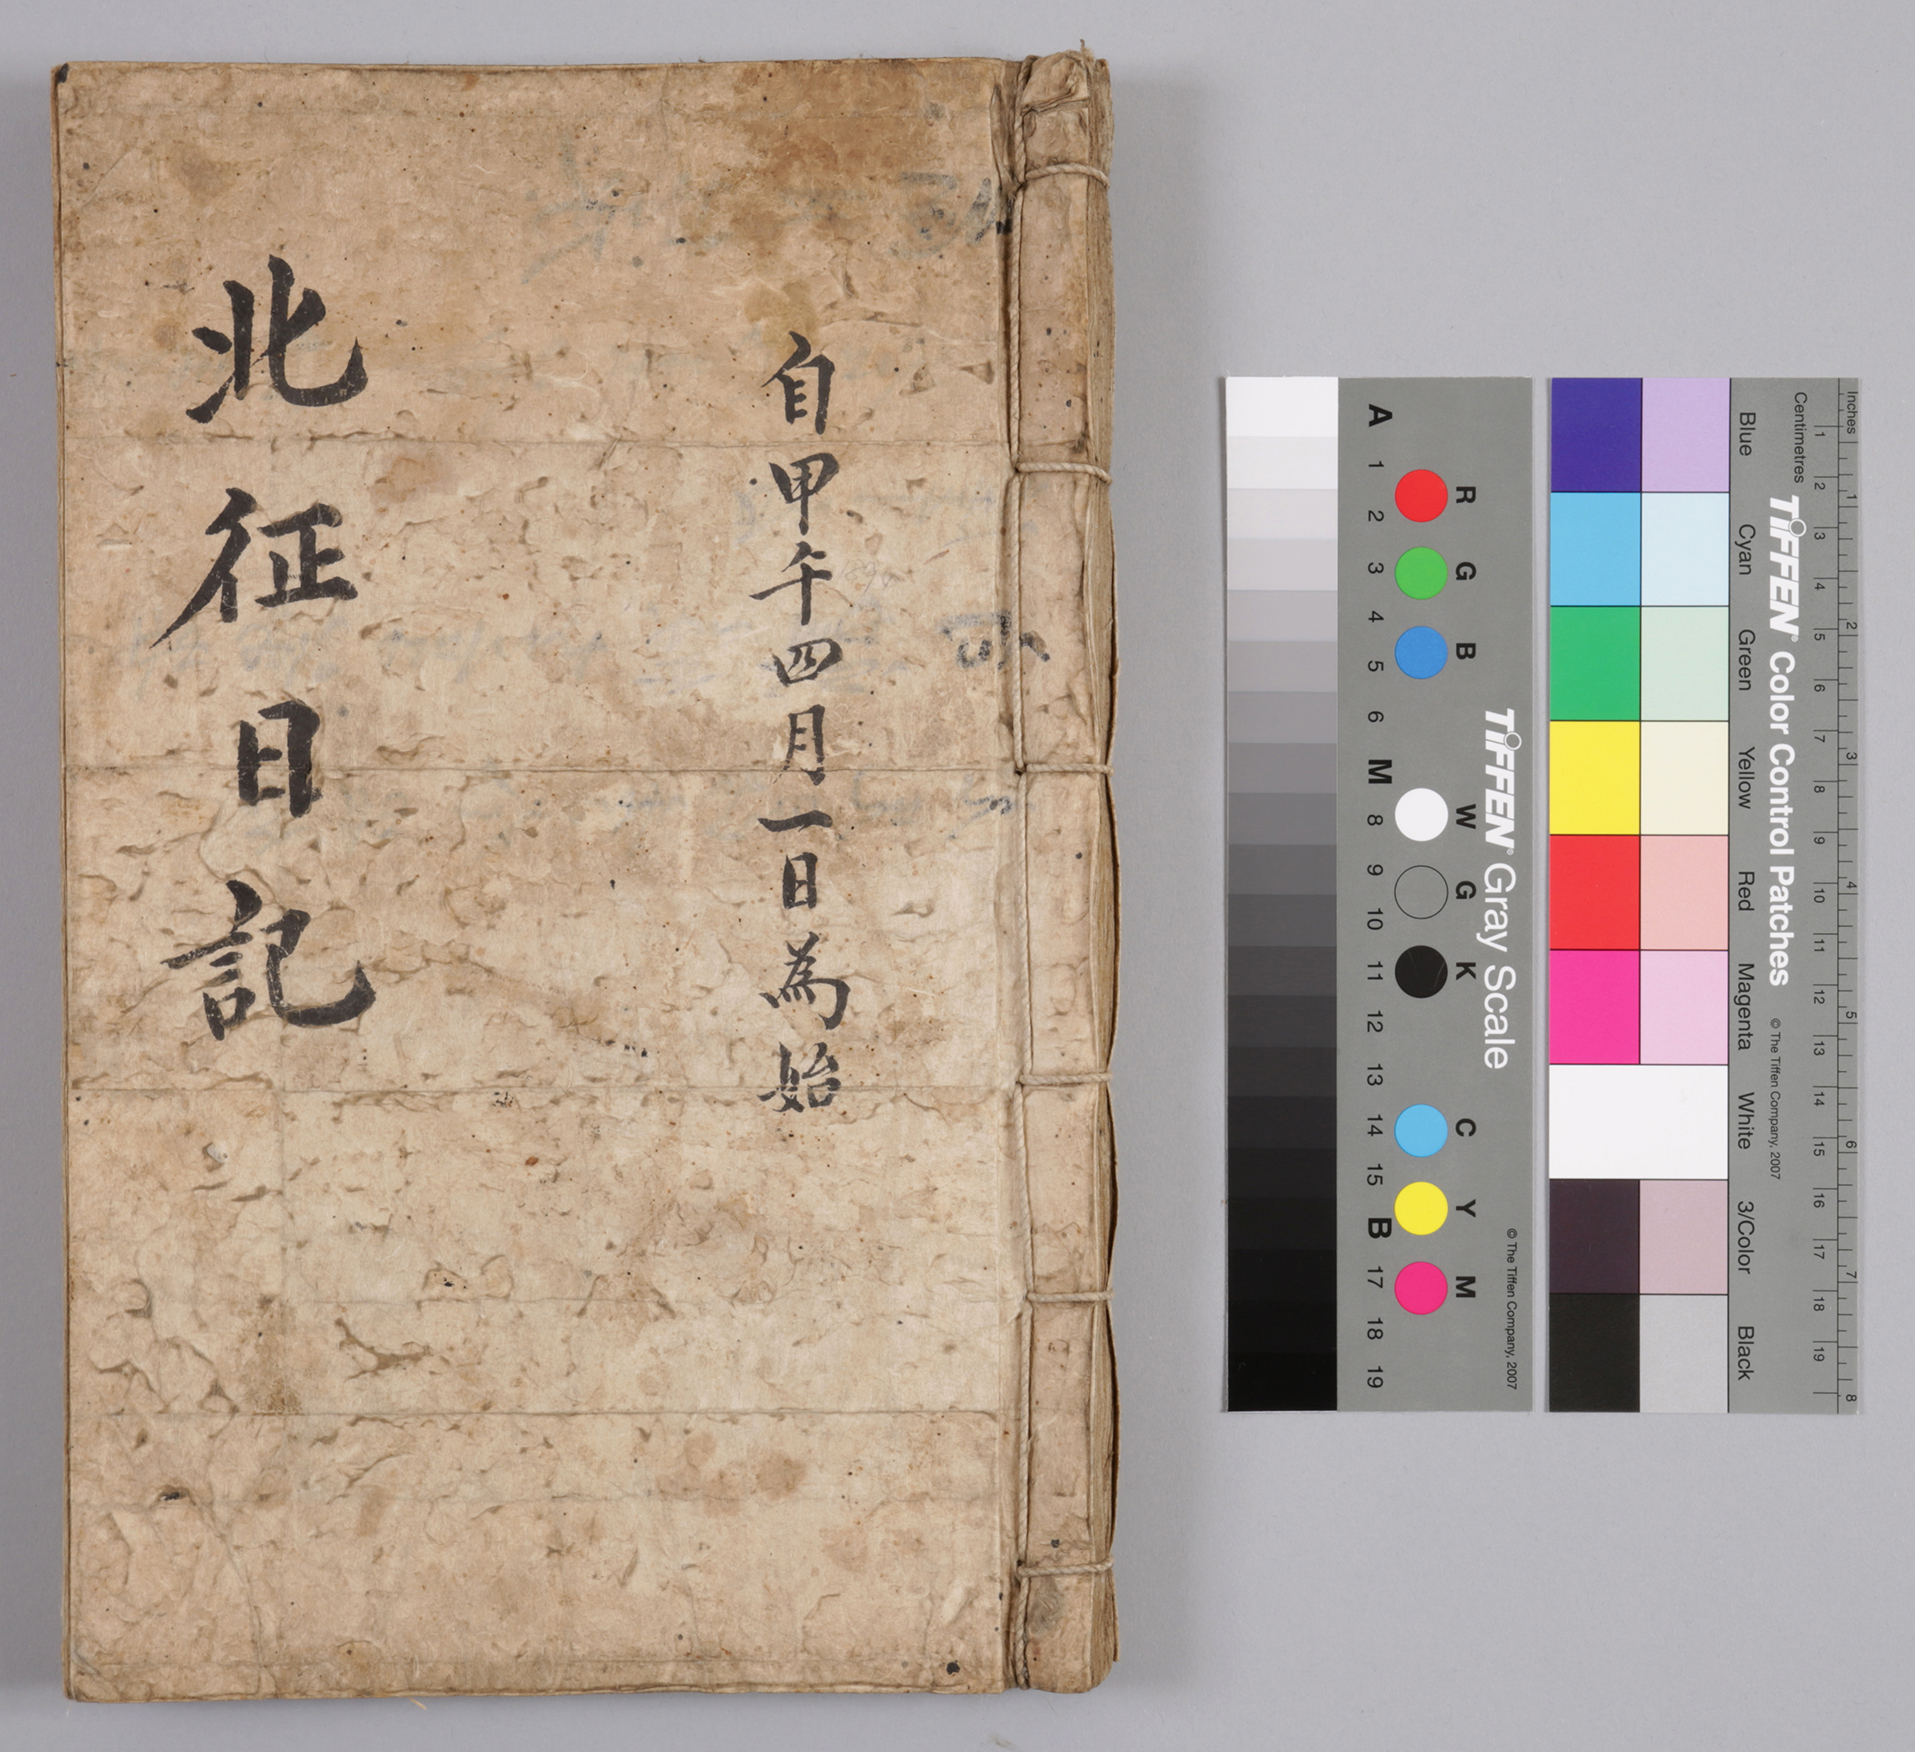 自甲午四月一日為始
北征日記
A 1 2 3 4 5 6 M 8 9 10 11 12 13 14 15 B 17 18 19
R G B W G K C Y M
TIFFEN® Gray Scale
© The Tiffen Company, 2007
Blue Cyan Green Yellow Red Magenta White 3/Color Black
TIFFEN® Color Control Patches
© The Tiffen Company, 2007
Centimetres 1 2 3 4 5 6 7 8 9 10 11 12 13 14 15 16 17 18 19
Inches 1 2 3 4 5 6 7 8